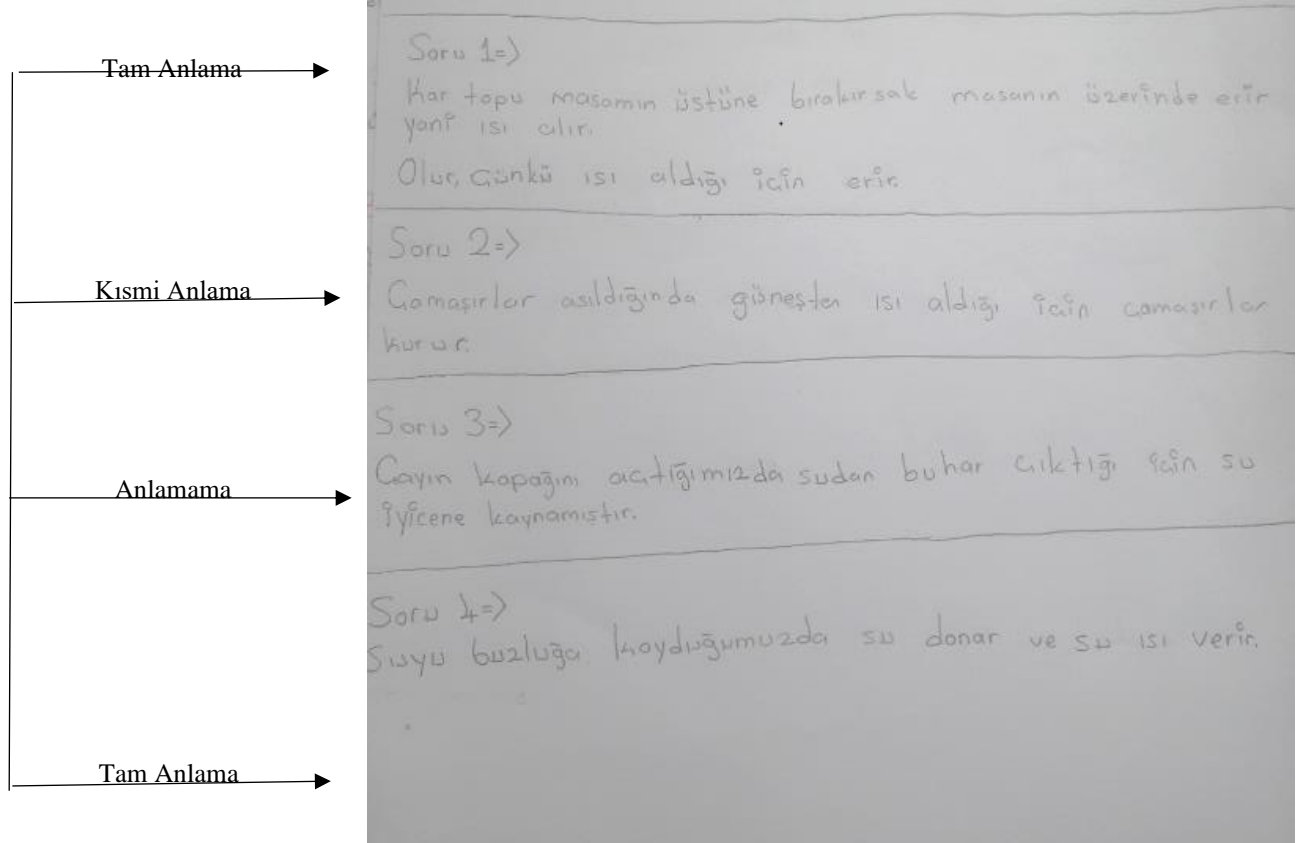 Tam Anlama
Soru 1=>
Kar topu masamın üstüne bırakırsak masanın üzerinde erir
yani ısı alır.
Olur, Çünkü ısı aldığı için erir.
Kısmi Anlama
Soru 2=>
Çamaşırlar asıldığında güneşten ısı aldığı için çamaşırlar
kurur.
Anlamama
Soru 3=>
Çayın kapağını açtığımızda sudan buhar çıktığı için su
iyicene kaynamıştır.
Soru 4=>
Suyu buzluğa koyduğumuzda su donar ve su ısı verir.
Tam Anlama